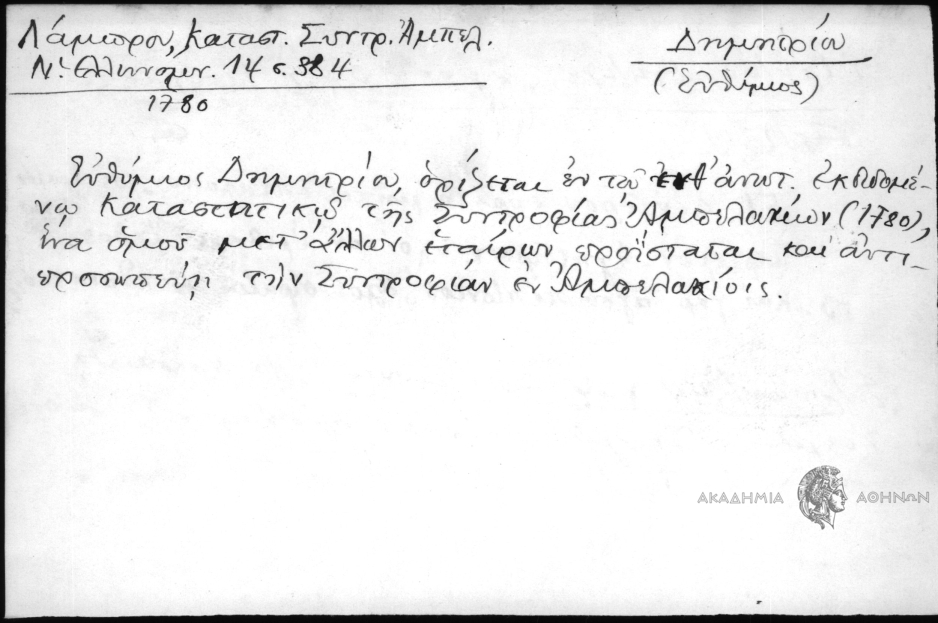 Λάμπρου, Καταστ. Συντρ. Ἀμπελ.
Ν. Ἑλληνομν. 14 σ. 384
1780
Δημητρίου
(Εὐθύμιος)
Εὐθύμιος Δημητρίου, ὁρίζεται ἐν τῷ ἀνωτ. ἐκδιδομέ-
νῳ Καταστατικῷ τῆς Συντροφίας Ἀμπελακίων (1780),
ἵνα ὁμοῦ μετ' ἄλλων ἑταίρων προΐσταται καὶ ἀντι-
προσωπεύῃ τὴν Συντροφίαν ἐν Ἀμπελακίοις.
ΑΚΑΔΗΜΙΑ ΑΘΗΝΩΝ